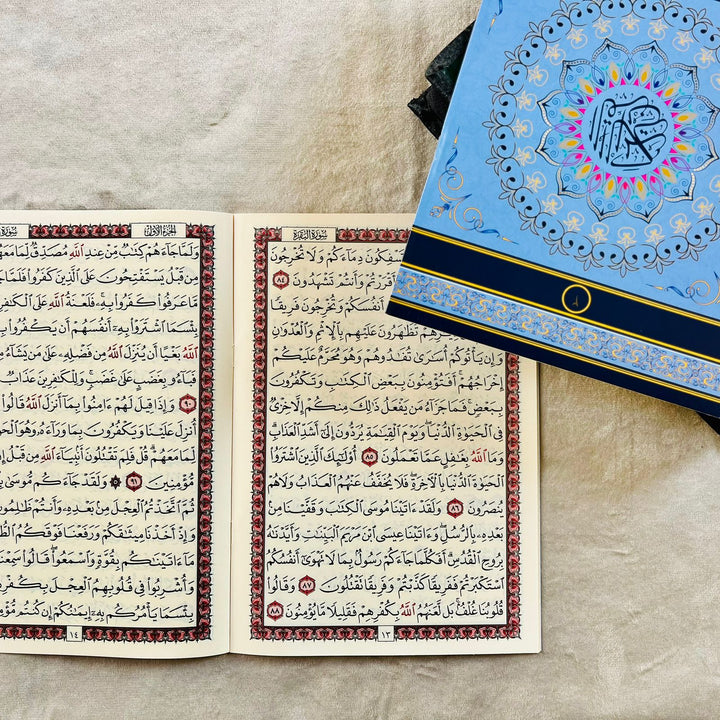 سُورَةُ الْبَقَرَةِ
دِمَاءَكُمْ وَلَا تُخْرِجُونَ
أَقْرَرْتُمْ وَأَنْتُمْ تَشْهَدُونَ ٨٤
أَنْفُسَكُمْ وَتُخْرِجُونَ فَرِيقًا
تَظَٰهَرُونَ عَلَيْهِمْ بِالْإِثْمِ وَالْعُدْوَانِ
وَإِنْ يَأْتُوكُمْ أُسَٰرَىٰ تُفَٰدُوهُمْ وَهُوَ مُحَرَّمٌ عَلَيْكُمْ
إِخْرَاجُهُمْ أَفَتُؤْمِنُونَ بِبَعْضِ الْكِتَٰبِ وَتَكْفُرُونَ
بِبَعْضٍ فَمَا جَزَاءُ مَنْ يَفْعَلُ ذَٰلِكَ مِنْكُمْ إِلَّا خِزْيٌ
فِي الْحَيَوٰةِ الدُّنْيَا وَيَوْمَ الْقِيَٰمَةِ يُرَدُّونَ إِلَىٰ أَشَدِّ الْعَذَابِ
وَمَا اللَّهُ بِغَٰفِلٍ عَمَّا تَعْمَلُونَ ٨٥ أُولَٰئِكَ الَّذِينَ اشْتَرَوُا
الْحَيَوٰةَ الدُّنْيَا بِالْآخِرَةِ فَلَا يُخَفَّفُ عَنْهُمُ الْعَذَابُ وَلَا هُمْ
يُنْصَرُونَ ٨٦ وَلَقَدْ ءَاتَيْنَا مُوسَى الْكِتَٰبَ وَقَفَّيْنَا مِنْ
بَعْدِهِ بِالرُّسُلِ وَءَاتَيْنَا عِيسَى ابْنَ مَرْيَمَ الْبَيِّنَٰتِ وَأَيَّدْنَٰهُ
بِرُوحِ الْقُدُسِ أَفَكُلَّمَا جَاءَكُمْ رَسُولٌ بِمَا لَا تَهْوَىٰ أَنْفُسُكُمُ
اسْتَكْبَرْتُمْ فَفَرِيقًا كَذَّبْتُمْ وَفَرِيقًا تَقْتُلُونَ ٨٧ وَقَالُوا
قُلُوبُنَا غُلْفٌ بَلْ لَعَنَهُمُ اللَّهُ بِكُفْرِهِمْ فَقَلِيلًا مَا يُؤْمِنُونَ ٨٨
١٣
الجُزْءُ الأَوَّلُ
وَلَمَّا جَاءَهُمْ كِتَٰبٌ مِنْ عِنْدِ اللَّهِ مُصَدِّقٌ لِمَا مَعَهُمْ
مِنْ قَبْلُ يَسْتَفْتِحُونَ عَلَى الَّذِينَ كَفَرُوا فَلَمَّا
مَا عَرَفُوا كَفَرُوا بِهِ فَلَعْنَةُ اللَّهِ عَلَى الْكَٰفِرِينَ
بِئْسَمَا اشْتَرَوْا بِهِ أَنْفُسَهُمْ أَنْ يَكْفُرُوا
اللَّهُ بَغْيًا أَنْ يُنَزِّلَ اللَّهُ مِنْ فَضْلِهِ عَلَىٰ مَنْ يَشَاءُ
فَبَاءُو بِغَضَبٍ عَلَىٰ غَضَبٍ وَلِلْكَٰفِرِينَ عَذَابٌ
٩٠ وَإِذَا قِيلَ لَهُمْ ءَامِنُوا بِمَا أَنْزَلَ اللَّهُ قَالُوا
أُنْزِلَ عَلَيْنَا وَيَكْفُرُونَ بِمَا وَرَاءَهُ وَهُوَ
لِمَا مَعَهُمْ قُلْ فَلِمَ تَقْتُلُونَ أَنْبِيَاءَ اللَّهِ مِنْ قَبْلُ
مُؤْمِنِينَ ٩١ وَلَقَدْ جَاءَكُمْ مُوسَىٰ
ثُمَّ اتَّخَذْتُمُ الْعِجْلَ مِنْ بَعْدِهِ وَأَنْتُمْ ظَٰلِمُونَ
وَإِذْ أَخَذْنَا مِيثَٰقَكُمْ وَرَفَعْنَا فَوْقَكُمُ
مَا ءَاتَيْنَٰكُمْ بِقُوَّةٍ وَاسْمَعُوا قَالُوا سَمِعْنَا
وَأُشْرِبُوا فِي قُلُوبِهِمُ الْعِجْلَ بِكُفْرِهِمْ
بِئْسَمَا يَأْمُرُكُمْ بِهِ إِيمَٰنُكُمْ إِنْ كُنْتُمْ
١٤